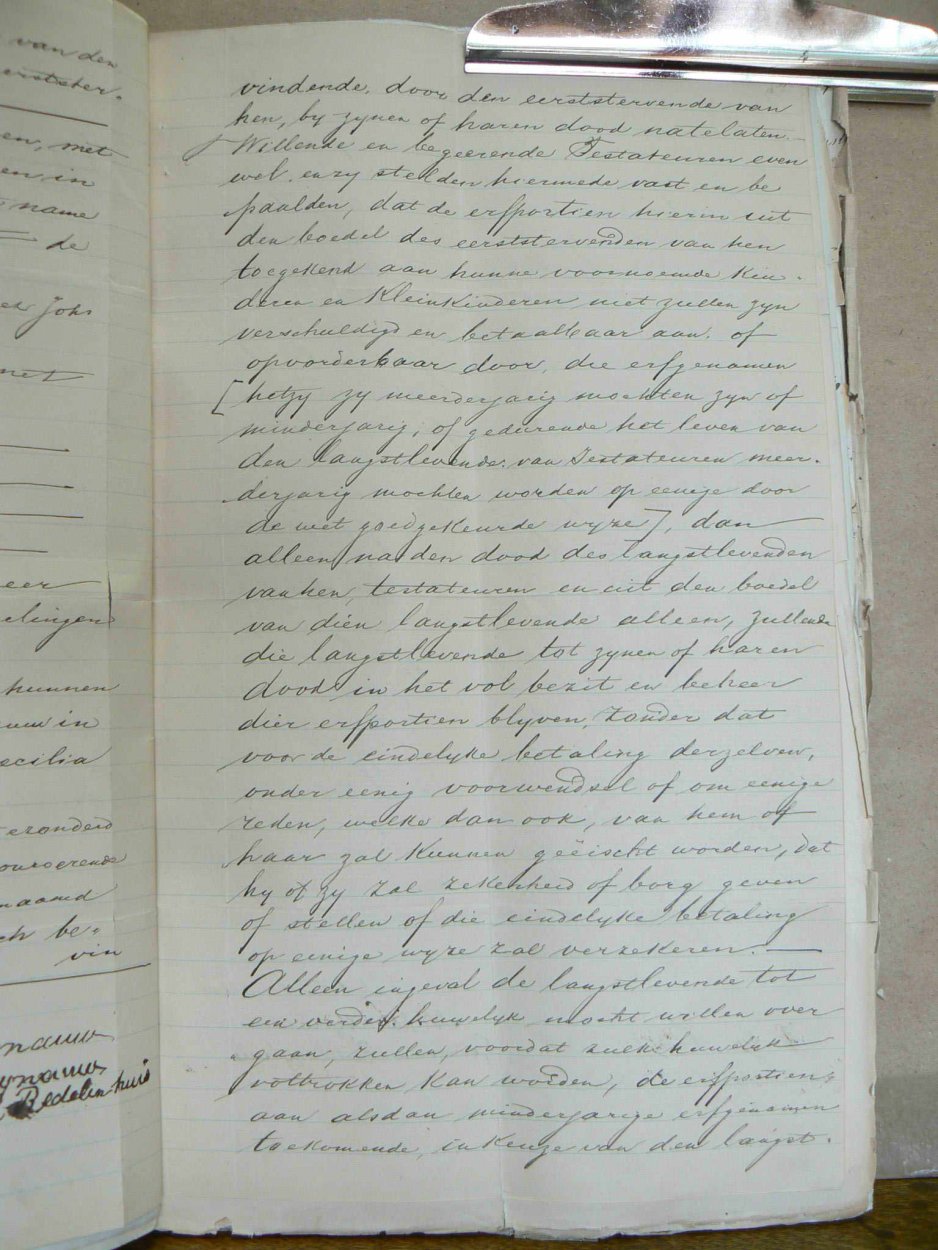 van den
eerstster.
en, met
en in
name
de
Johs
met
eer
elingen
kunnen
in
ecilia
bevin
Redelinhuis
vindende, door den eerststervende van
hen, by zynen of haren dood natelaten.
Willende en begeerende Testateuren even
wel, en zy stelden hiermede vast en be
paalden, dat de erfportien hierin uit
den boedel des eerststervenden van hen
toegekend aan hunne voornoemde Kin-
deren en Kleinkinderen niet zullen zyn
verschuldigd en betaalbaar aan, of
opvorderbaar door, die erfgenamen
[hetzy zy meerderjarig mochten zyn of
minderjarig, of gedurende het leven van
den langstlevende van Testateuren meer-
derjarig mochten worden op eenige door
de wet goedgekeurde wyze], dan
alleen na den dood des langstlevenden
van hen, testateuren en uit den boedel
van dien langstlevende alleen, zullende
die langstlevende tot zynen of haren
dood in het vol bezit en beheer
dier erfportien blyven, zonder dat
voor de eindelyke betaling derzelven,
onder eenig voorwendsel of om eenige
reden, welke dan ook, van hem of
haar zal kunnen geëischt worden, dat
hy of zy zal zekerheid of borg geven
of stellen of die eindelyke betaling
op eenige wyze zal verzekeren.
Alleen ingeval de langstlevende tot
een verder huwelyk mocht willen over
gaan, zullen, voordat zulk huwelyk
voltrokken kan worden, de erfportien,
aan alsdan minderjarige erfgenamen
toekomende, in keuze van den langst-